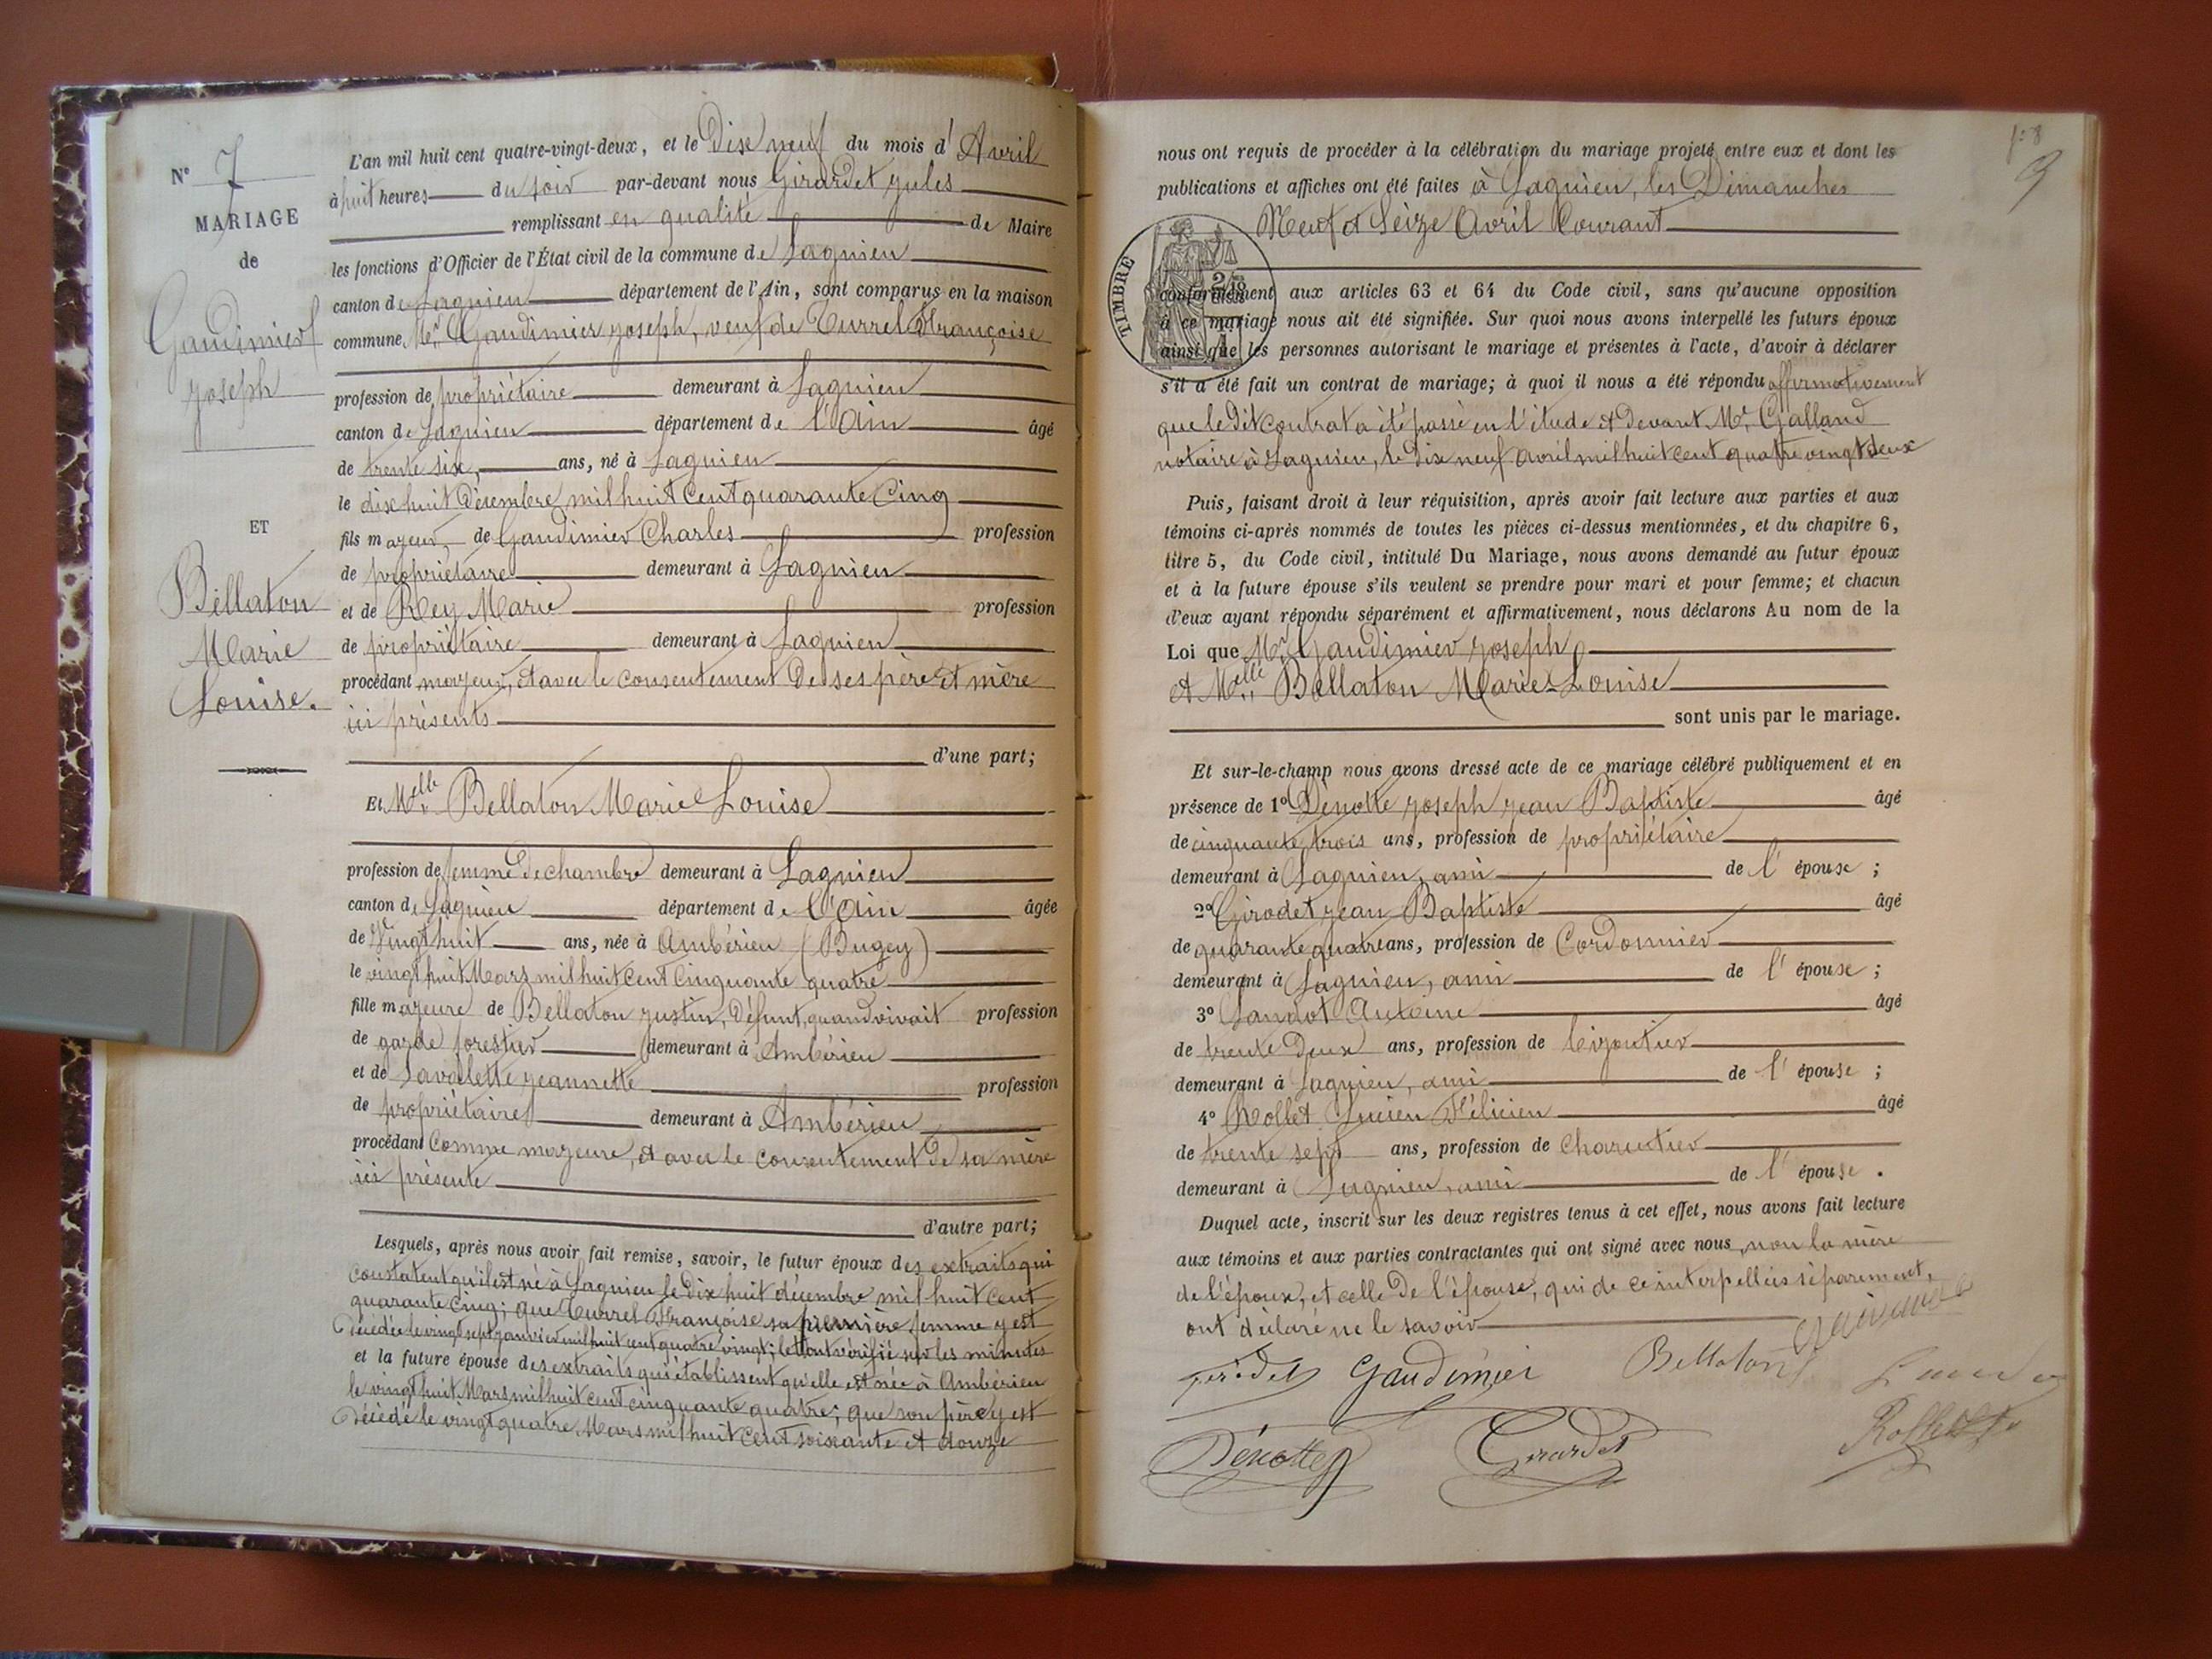 N° 7
MARIAGE
de
Gaudimier
Joseph
ET
Bellaton
Marie
Louise.
L'an mil huit cent quatre-vingt-deux, et le Dixe neuf du mois d'Avril
à huit heures du soir par-devant nous Girardet Jules
remplissant en qualité de Maire
les fonctions d'Officier de l'État civil de la commune de Lagnieu
canton de Lagnieu département de l'Ain, sont comparus en la maison
commune Mr. Gaudimier Joseph, veuf de Turrel Françoise
profession de propriétaire demeurant à Lagnieu
canton de Lagnieu département de l'Ain âgé
de trente six, ans, né à Lagnieu
le dixe huit Décembre mil huit cent quarante Cinq
fils majeur de Gaudimier Charles profession
de propriétaire demeurant à Lagnieu
et de Rey Marie profession
de propriétaire demeurant à Lagnieu
procédant majeur, et avec le consentement de ses père et mère
ici présents
d'une part;
Et Melle Bellaton Marie Louise
profession de femme de chambre demeurant à Lagnieu
canton de Lagnieu département de l'Ain âgée
de Vingt huit ans, née à Ambérieu (Bugey)
le vingt huit Mars mil huit cent cinquante quatre
fille majeure de Bellaton Justin, Défunt, quand vivait profession
de garde forestier demeurant à Ambérieu
et de Lavalette Jeannette profession
de propriétaire demeurant à Ambérieu
procédant Comme majeure, et avec le consentement de sa mère
ici présente
d'autre part;
Lesquels, après nous avoir fait remise, savoir, le futur époux des extraits qui
constatent qu'il est né à Lagnieu le dix huit décembre mil huit cent
quarante cinq; que Turrel Françoise sa première femme y est
décédée le vingt sept janvier mil huit cent quatre vingt; le tout vérifié sur les minutes
et la future épouse des extraits qui établissent qu'elle est née à Ambérieu
le vingt huit Mars mil huit cent cinquante quatre; que son père y est
décédé le vingt quatre Mars mil huit cent soixante et douze
f: 8
9
nous ont requis de procéder à la célébration du mariage projeté entre eux et dont les
publications et affiches ont été faites à Lagnieu, les Dimanches
Neuf et Seize Avril Courant
TIMBRE
conformément aux articles 63 et 64 du Code civil, sans qu'aucune opposition
à ce mariage nous ait été signifiée. Sur quoi nous avons interpellé les futurs époux
ainsi que les personnes autorisant le mariage et présentes à l'acte, d'avoir à déclarer
s'il a été fait un contrat de mariage; à quoi il nous a été répondu affirmativement
que le dit contrat a été passé en l'étude et devant Me. Galland
notaire à Lagnieu, le dix neuf avril mil huit cent quatre vingt deux
Puis, faisant droit à leur réquisition, après avoir fait lecture aux parties et aux
témoins ci-après nommés de toutes les pièces ci-dessus mentionnées, et du chapitre 6,
titre 5, du Code civil, intitulé Du Mariage, nous avons demandé au futur époux
et à la future épouse s'ils veulent se prendre pour mari et pour femme; et chacun
d'eux ayant répondu séparément et affirmativement, nous déclarons Au nom de la
Loi que Mr. Gaudimier Joseph
et Melle Bellaton Marie-Louise
sont unis par le mariage.
Et sur-le-champ nous avons dressé acte de ce mariage célébré publiquement et en
présence de 1° Dénotte Joseph Jean Baptiste âgé
de cinquante trois ans, profession de propriétaire
demeurant à Lagnieu, ami de l'épouse;
2° Girodet Jean Baptiste âgé
de quarante quatre ans, profession de Cordonnier
demeurant à Lagnieu, ami de l'épouse;
3° Landot Antoine âgé
de trente deux ans, profession de bijoutier
demeurant à Lagnieu, ami de l'épouse;
4° Rollet Lucien Félicien âgé
de trente sept ans, profession de Charcutier
demeurant à Lagnieu, ami de l'épouse.
Duquel acte, inscrit sur les deux registres tenus à cet effet, nous avons fait lecture
aux témoins et aux parties contractantes qui ont signé avec nous, non la mère
de l'époux, et celle de l'épouse, qui de ce interpellées séparément,
ont déclaré ne le savoir
Girodet Gaudimier Bellaton
Dénotte Girardet Rollet